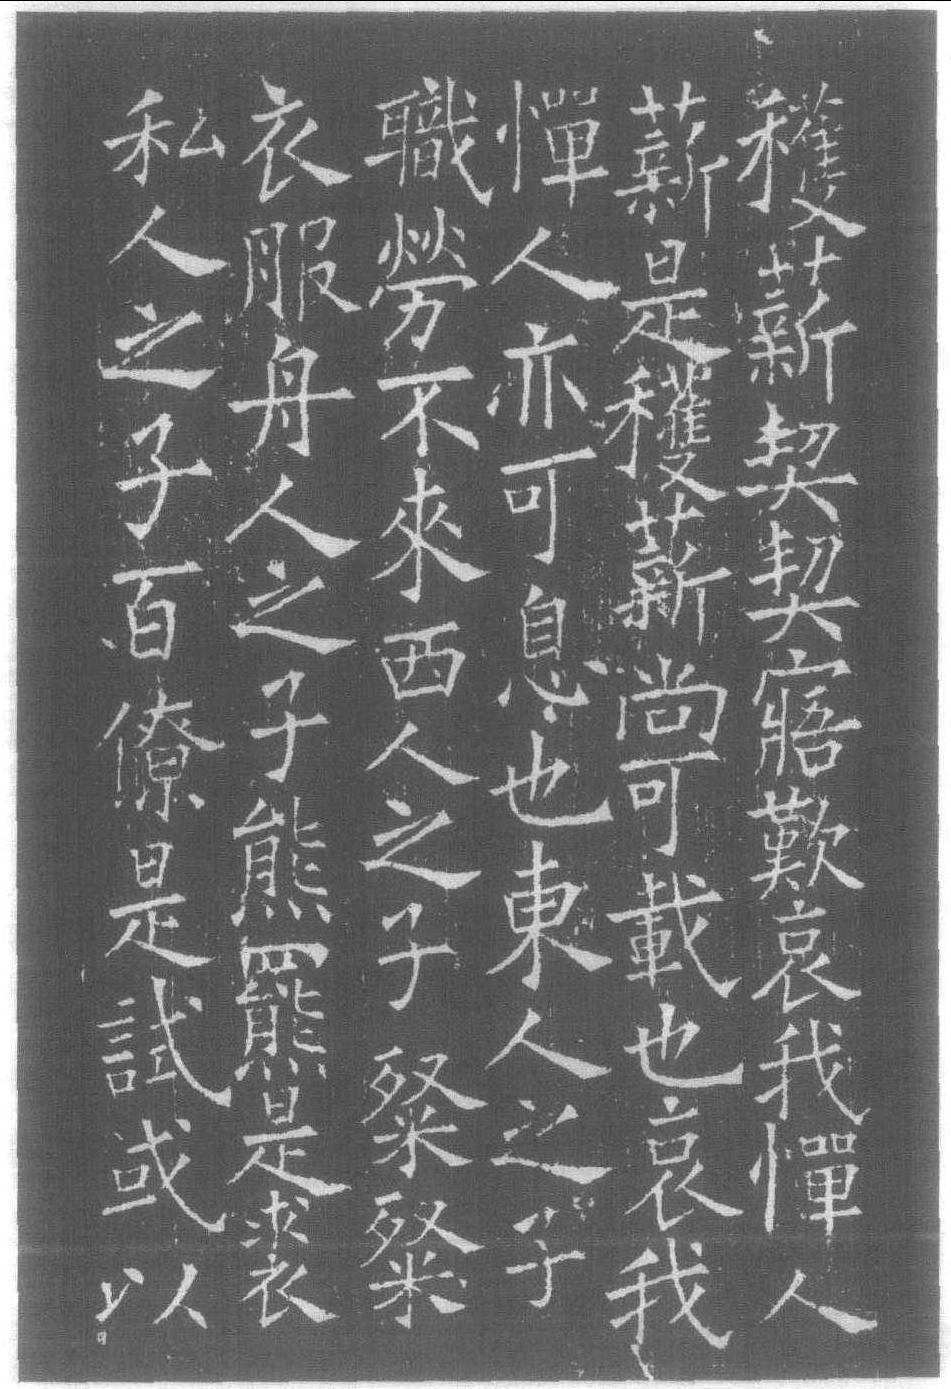 穫薪契契寤歎哀我憚人
薪是穫薪尚可載也哀我
憚人亦可息也東人之子
職勞不來西人之子粲粲
衣服舟人之子熊羆是裘
私人之子百僚是試或以